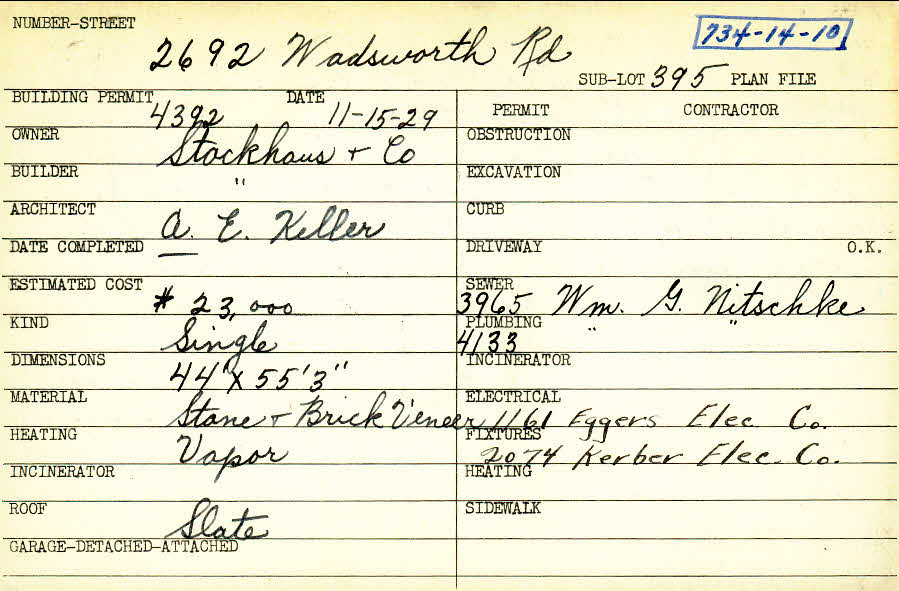 NUMBER-STREET
734-14-10
2692 Wadsworth Rd
SUB-LOT 395 PLAN FILE
BUILDING PERMIT DATE
4392 11-15-29
PERMIT CONTRACTOR
OWNER
Stockhaus + Co
OBSTRUCTION
BUILDER
"
EXCAVATION
ARCHITECT
A. E. Keller
CURB
DATE COMPLETED
—
DRIVEWAY O.K.
ESTIMATED COST
# 23,000
SEWER
3965 Wm. G. Nitschke
KIND
Single
PLUMBING
4133 " "
DIMENSIONS
44' X 55'3"
INCINERATOR
MATERIAL
Stone + Brick Veneer
ELECTRICAL
1161 Eggers Elec Co.
HEATING
Vapor
FIXTURES
2074 Kerber Elec. Co.
INCINERATOR
HEATING
ROOF
Slate
SIDEWALK
GARAGE-DETACHED-ATTACHED